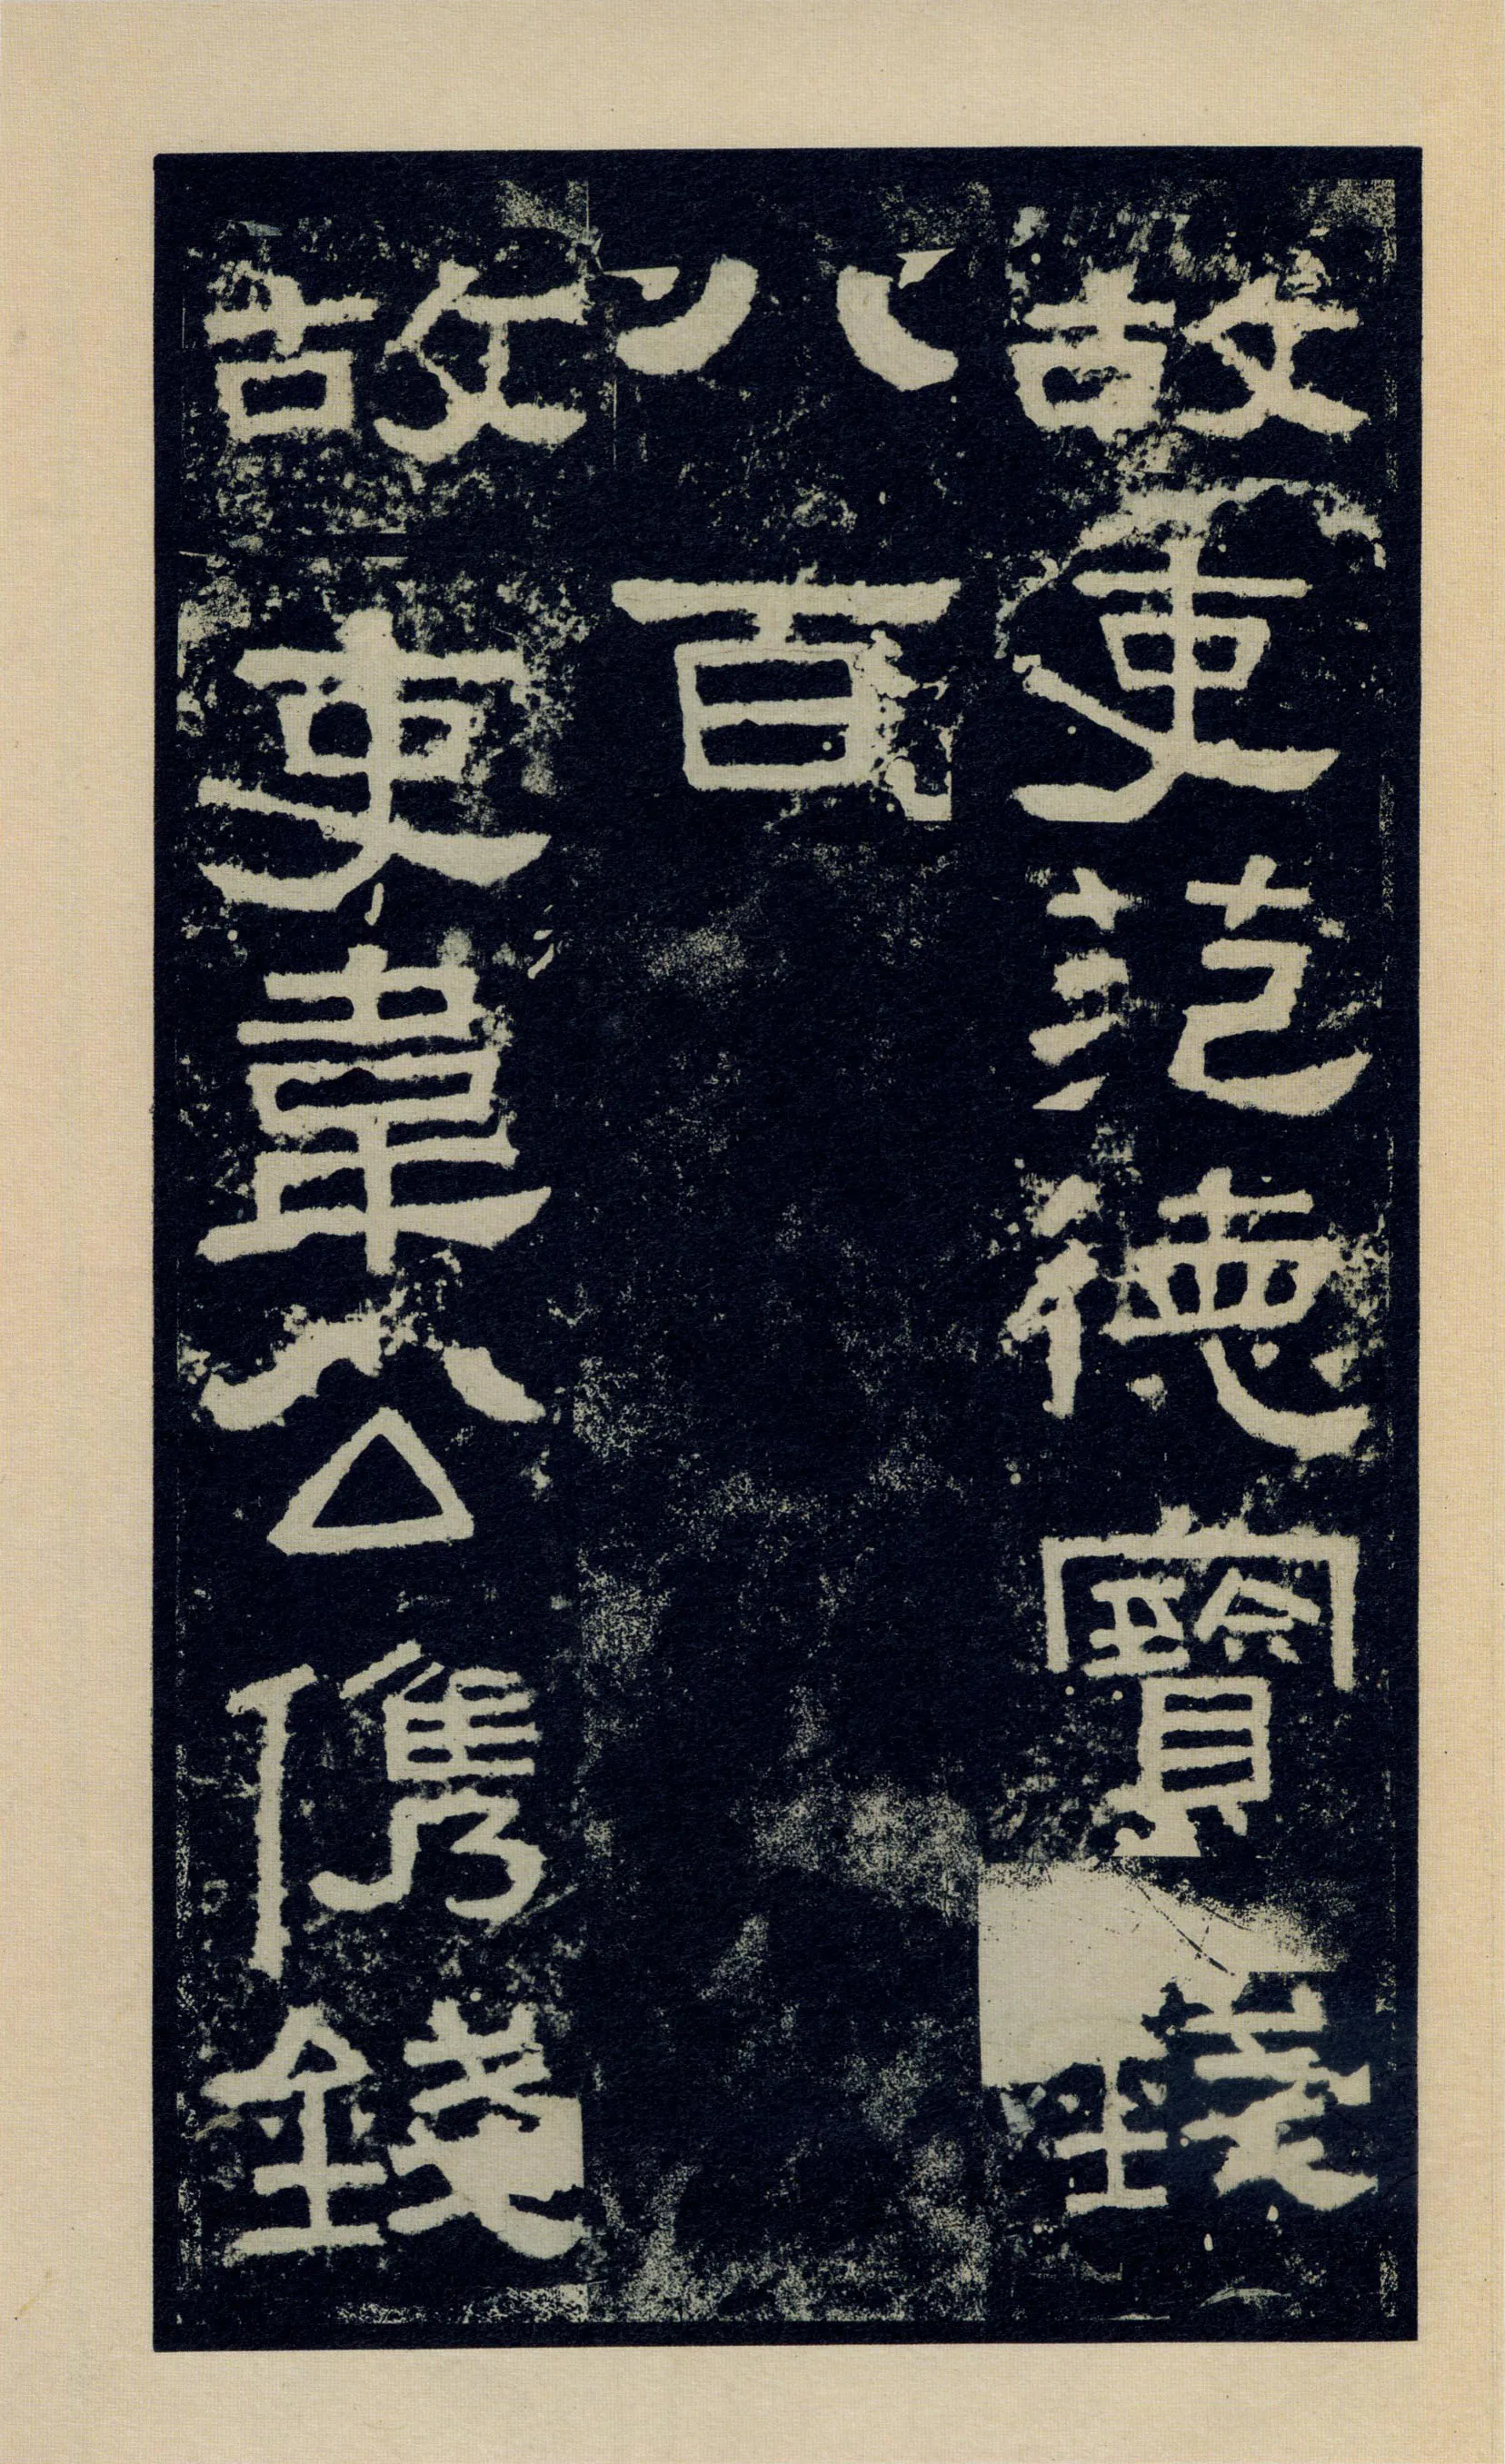 故吏范德寶錢
八百
故吏韋公儁錢